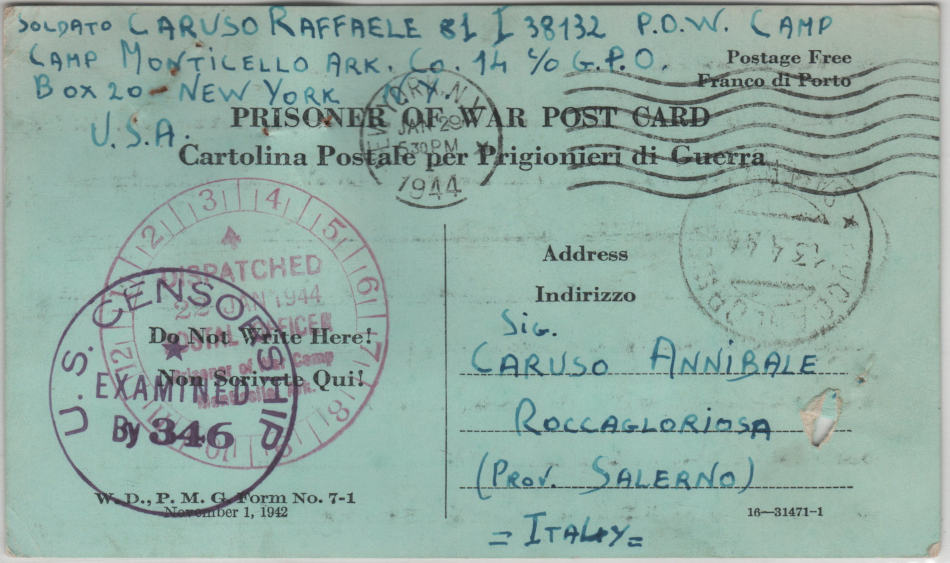 SOLDATO CARUSO RAFFAELE 81 I 38132 P.O.W. CAMP
CAMP MONTICELLO ARK. Co. 14 c/o G.P.O.
BOX 20 - NEW YORK N.Y.
U.S.A.
Postage Free
Franco di Porto
PRISONER OF WAR POST CARD
Cartolina Postale per Prigionieri di Guerra
NEW YORK, N.Y.
JAN 29
5 30 PM
1944
13 4 4
1 2 3 4 5 6 7 8 9 10 11 12
DISPATCHED
22 JAN 1944
POSTAL OFFICER
Prisoner of War Camp
Monticello, Ark.
U.S. CENSORSHIP
EXAMINED
By 346
Do Not Write Here!
Non Scrivete Qui!
W. D., P. M. G. Form No. 7-1
November 1, 1942
Address
Indirizzo
Sig.
CARUSO ANNIBALE
ROCCAGLORIOSA
(PROV. SALERNO)
= ITALY =
16—31471-1